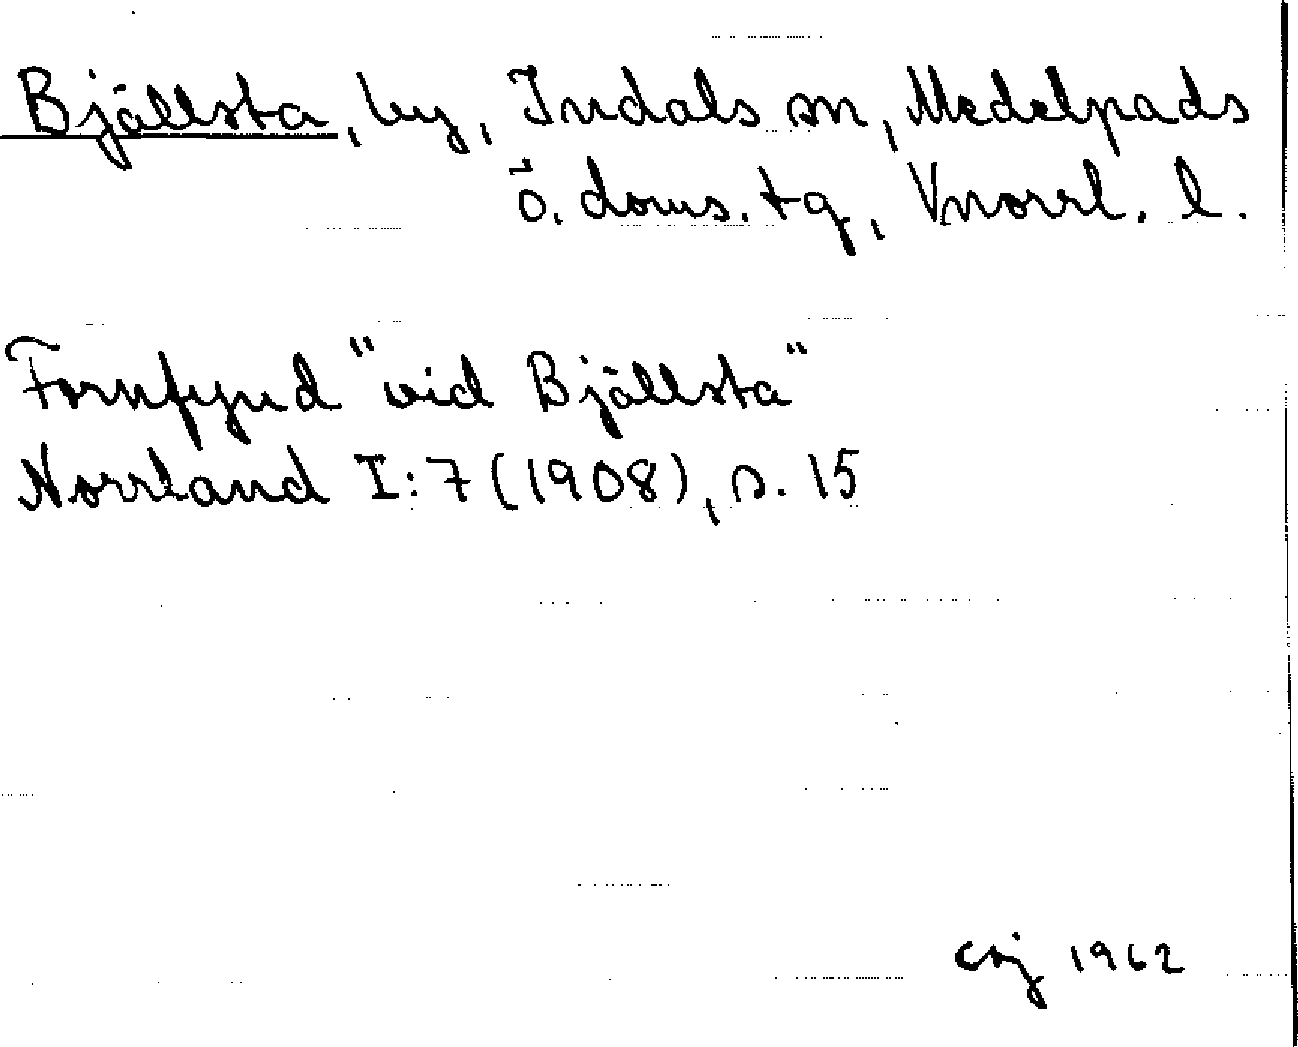 Bjällsta, by, Indals sn, Medelpads
ö. doms. tg, Vnorrl. l.
Fornfynd "vid Bjällsta"
Norrland I:7 (1908), s. 15
csj 1962